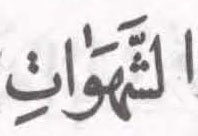 الشَّهَوَاتِ